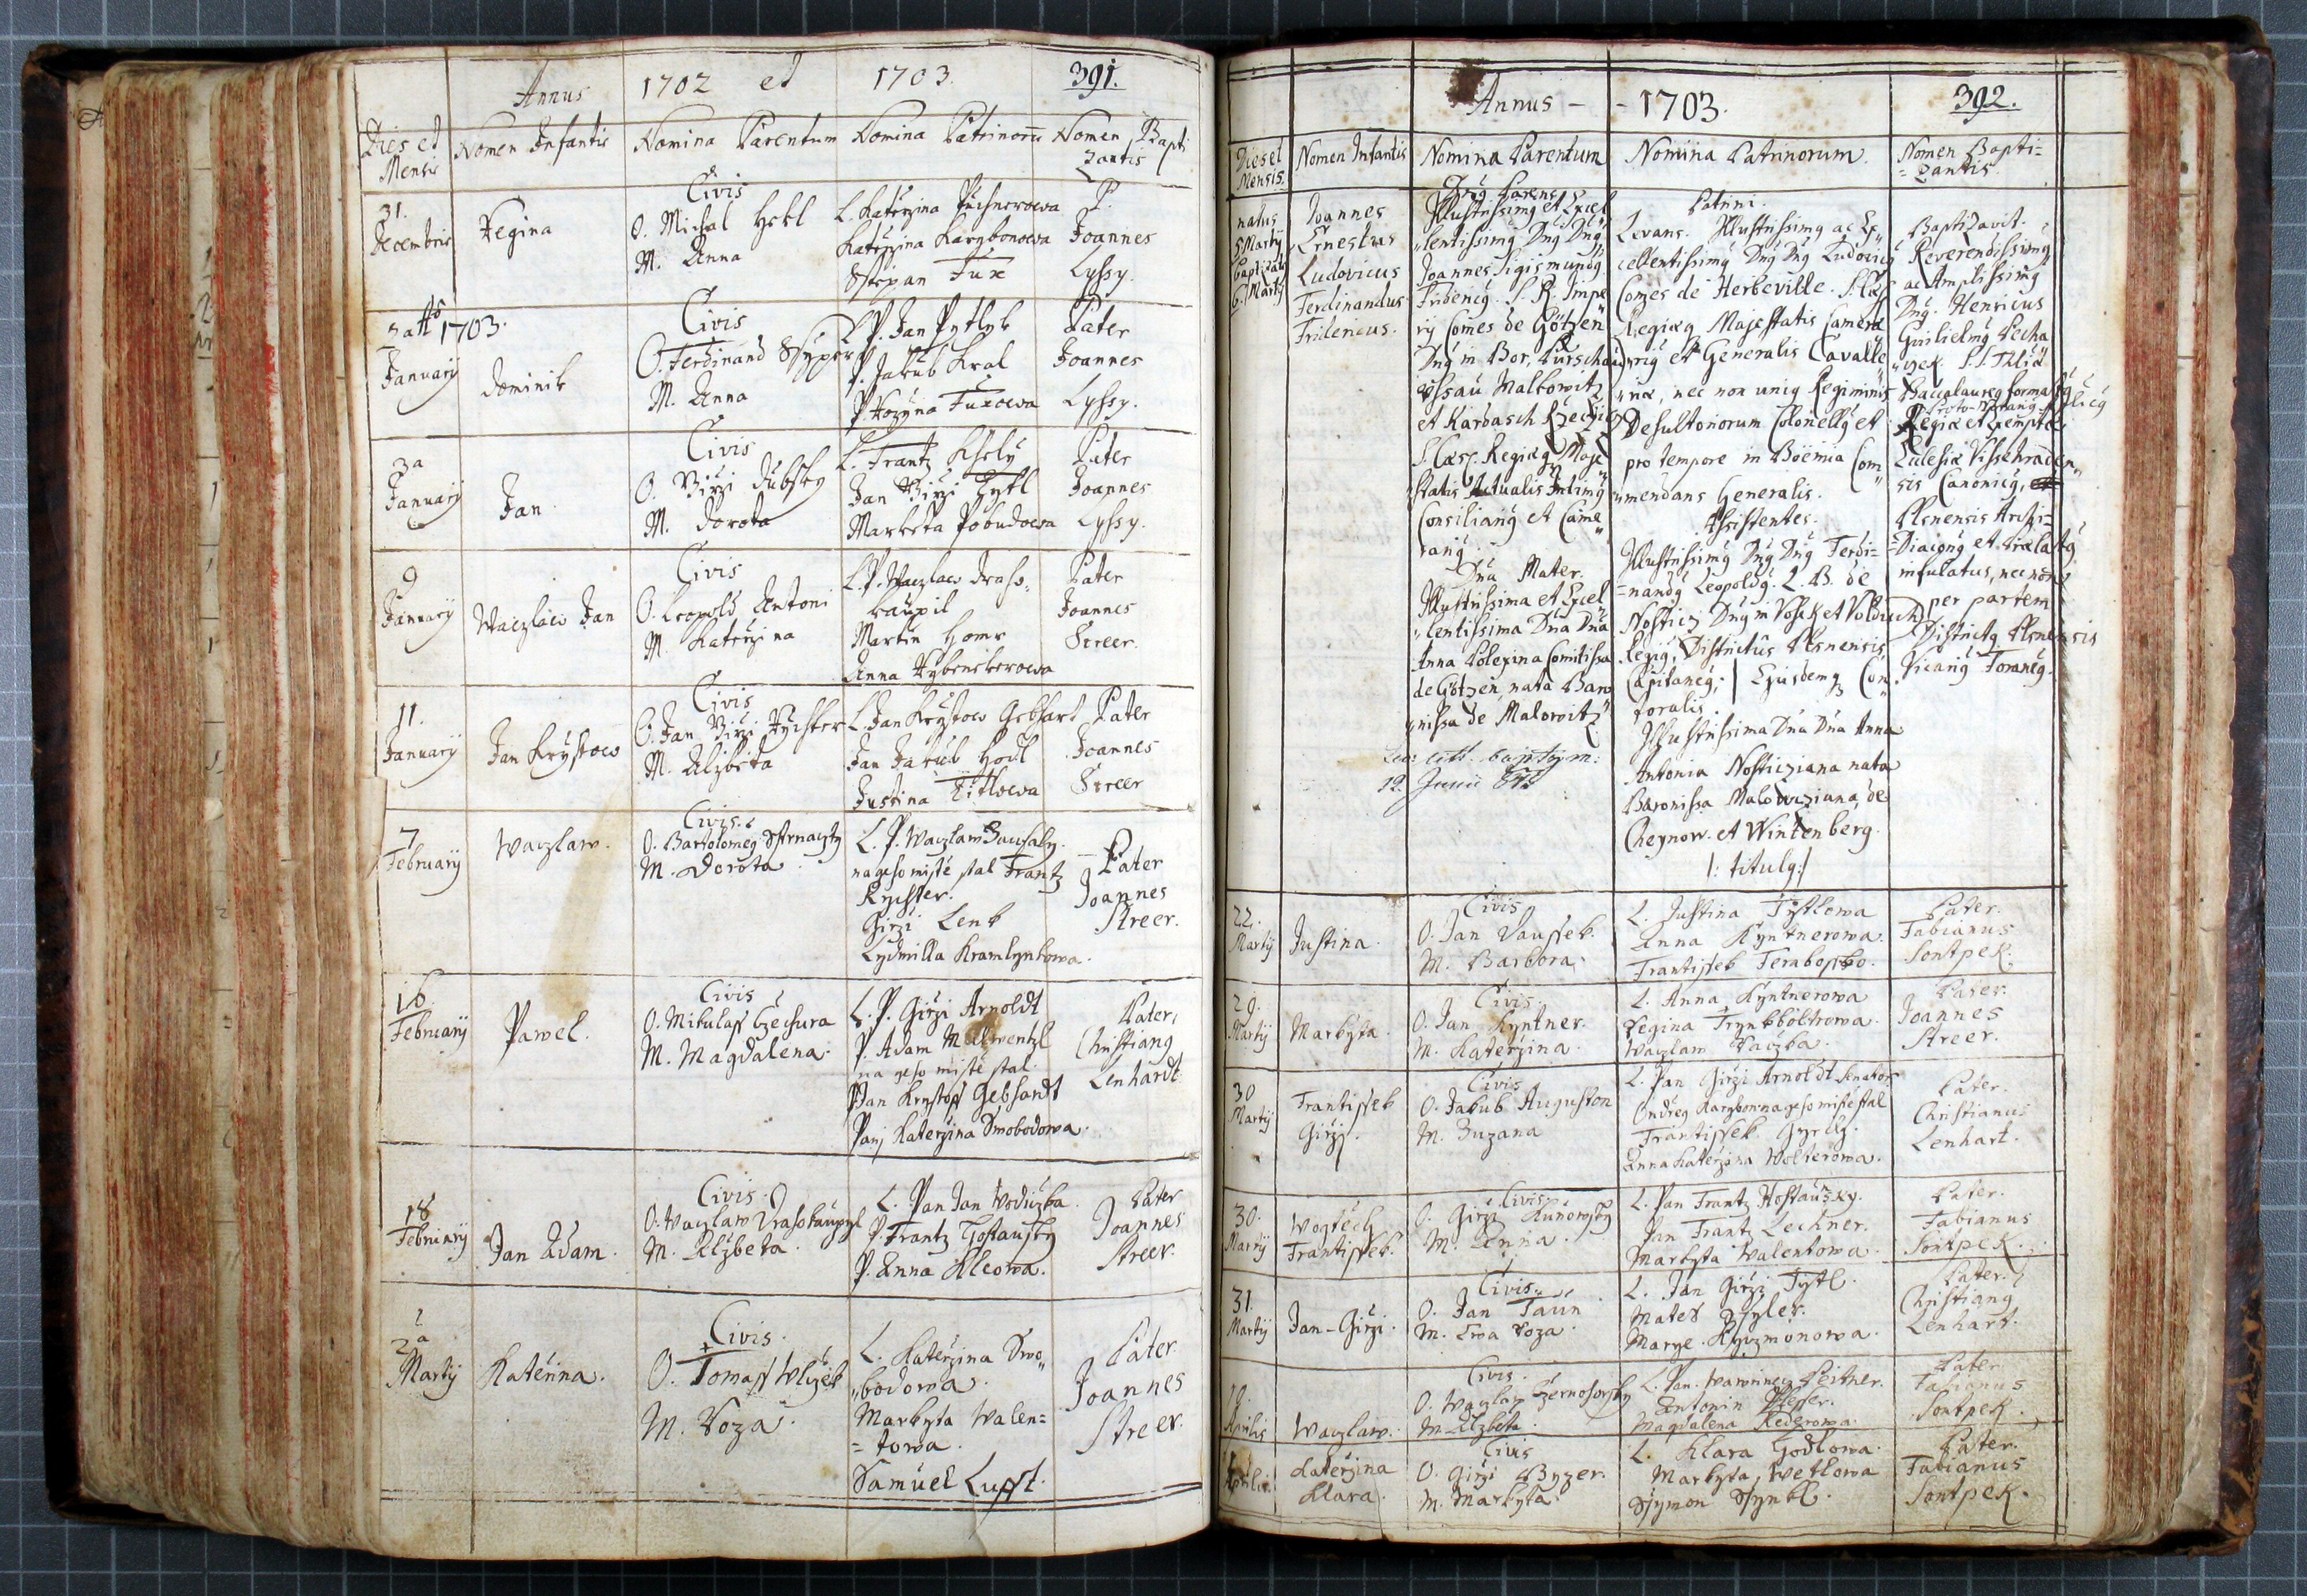 Annus 1702 et 1703. 391.
Dies et Mensis
Nomen Infantis
Nomina Parentum
Nomina Patrinorū
Nomen Bapti
zantis
31.
Decembris
Regina
Civis
O. Michal Hekl
M. Anna
L. Katerzina
Katerzina Karybonowa
Sstepan Fux
P.
Joannes
Lyssy.
1703.
January
Dominik
Civis
O. Ferdinand
M. Anna
L. P. Jan Pytlyk
P. Jakub Kral
P. Rozyna Fuxowa
Pater
Joannes
Lyssy.
3a
January
Jan
Civis
O. Girzi Dubsky
M. Dorota
L. Frantz
Jan Girzi
Marketa Pobudowa
Pater
Joannes
Lyssy.
9
January
Waczlaw Jan
Civis
O. Leopold Antoni
M. Katerzina
L. P. Waczlaw Draho,
kaupil
Martin
Anna
Pater
Joannes
Streer.
11.
January
Jan Krystow
Civis
O. Jan Girzi Rychter
M. Alzbeta
L. Jan Krystow Gebhart
Jan Jakub
Justina Titlowa
Pater
Joannes
Streer
7
February
Waczlaw.
Civis.
O. Bartolomeg
M. Dorota.
L. P. Waczlaw
na geho miste stal Frantz
Rychter.
Girzi Lenk
Lydmilla Kramlynkowa.
Pater
Joannes
Streer.
16
February
Pawel.
Civis
O. Mikulass Czechura
M. Magdalena.
L. P. Girzi Arnoldt
P. Adam
na geho miste stal
Pan Krystoff Gebhardt
Panj Katerzina Swobodowa.
Pater
Christiang
Lenhardt
18
February
Jan Adam.
Civis.
O. Waczlaw Drahokaupyl
M. Alzbeta.
L. Pan Jan Wodiczka
P. Frantz
P. Anna
Pater
Joannes
Streer.
2a
Marty
Katerina.
Civis.
O. Tomass Wlczek
M. Roza.
L. Katerzina Swo„
„bodowa.
Markyta Walen=
=towa.
Samuel Lufft.
Pater
Joannes
Streer.
Annus - - 1703. 392.
Dies et
Mensis.
Nomen Infantis
Nomina Parentum
Nomina Patrinorum.
Nomen Bapti=
=zantis.
natus
5 Martij
baptizatg
6. Martij
Joannes
Ernestus
Ludovicus
Ferdinandus
Fridericus.
Dng Parens
Illustrissimg et Excel
„lentissimg Dng Dng
Joannes Sigismundg
Fridericg. S. R. Impe
rij Comes de Götzen
Dng in Bor,
Malkowitz
et Kardasch
S. Caes. Regiaeq Maje
„statis Actualis Intimg
Consiliarig et Came
rarig.
Dna Mater.
Illustrissima et Excel
„lentissima Dna Dna
Anna Polexina Comitissa
de Götzen, nata Baro
„nissa de Malowitz
19. Junii 672
Patrini.
Levans. Illustrissimg ac Ex„
cellentissimg Dng Dng Ludovicg
Comes de Herbeville. S. Caes
Regiaeq Majestatis Camera
rig et Generalis Cavalle
„riae, nec non unig Regiminis
Desultoriorum Colonellg et
pro tempore in Böemia Com
„mendans Generalis.
Assistentes.
Illustrissimg Dng Dng Ferdi=
=nandg Leopoldg. L. B. de
Nosticz Dng in
Regig, Districtus Plsnensis
Capitaneg; | Ejusdemq Con
toralis.
Illustrissima Dna Dna Anna
Antonia Nosticziana nata
Baronissa Malowcziana, de
Cheynow. et Wintenberg.
|: titulg:|
Baptizavit.
Reverendissimg
ac Amplissimg
Dng. Henricus
Guilielmg Pecha
„czek. S. S. Thliae
Baccalaureg formatg
Regiae et Exemptae
Eclesiae Wissehraden„
sis Canonicg,
Plsnensis Archi=
=Diacong et Praelatg
infulatus, nec non
per partem
Districtg Plsnensis
Vicarig Foraneg.
22.
Martij
Justina.
Civis
O. Jan Daussek.
M. Barbora.
L. Justina Tytlowa
Anna Kyntnerowa.
Frantissek
Pater.
Fabianus
Sontpek.
29.
Martij
Markyta.
Civis.
O. Jan Kyntner.
M. Katerzina.
L. Anna Kyntnerowa
Regina
Waczlaw
Pater.
Joannes
Streer.
30
Martij
Frantissek
Girzj.
Civis
O. Jakub Auguston
M. Zuzana
L. Pan Girzi Arnoldt Senator
Ondreg Karybon na geho miste stal
Frantissek
Anna Katerzina Wolterowa.
Pater.
Christianus
Lenhart.
30.
Martij
Wogtěch
Frantissek.
Civis.
O. Girzi Kunowsky
M. Anna.
L. Pan Frantz Hostaunsky.
Pan Frantz Lechner.
Markyta Walentowa.
Pater.
Fabianus
Sontpek.
31.
Martij
Jan-Girzi.
Civis.
O. Jan Taun
M. Ewa Roza.
L. Jan Girzi Tytl.
Mates
Marye
Pater.
Christiang
Lenhart.
Aprilis
Waczlaw.
Civis.
O. Waczlaw Czernohorsky
M. Alzbeta.
L. Pan. Wawrinecz Leitner.
Antonin
Magdalena Rederowa.
Pater
Fabianus
Sontpek.
Aprilis.
Katerzina
Klara.
Civis
O. Girzi
M. Markyta.
L. Klara
Markyta
Ssymon
Pater.
Fabianus
Sontpek.